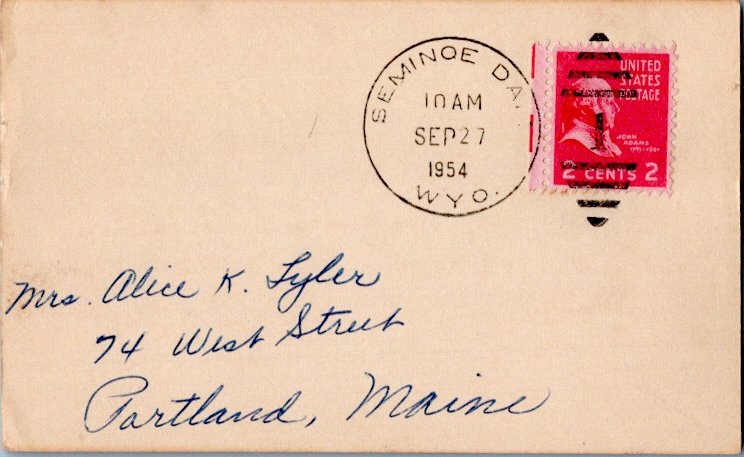 SEMINOE DA
10 AM
SEP 27
1954
WYO.
UNITED
STATES
POSTAGE
JOHN
ADAMS
2 CENTS 2
Mrs. Alice K. Tyler
74 West Street
Portland, Maine